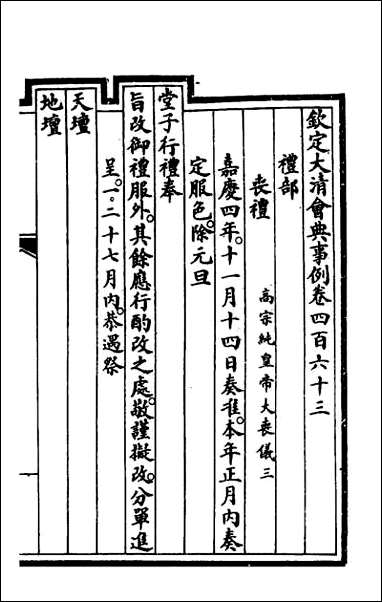 欽定大清會典事例卷四百六十三
禮部
喪禮 高宗純皇帝大喪儀三
嘉慶四年。十一月十四日奏准。本年正月內奏
定服色。除元旦
堂子行禮奉
旨改御禮服外。其餘應行酌改之處。敬謹擬改。分單進
呈。一。二十七月內。恭遇祭
天壇
地壇